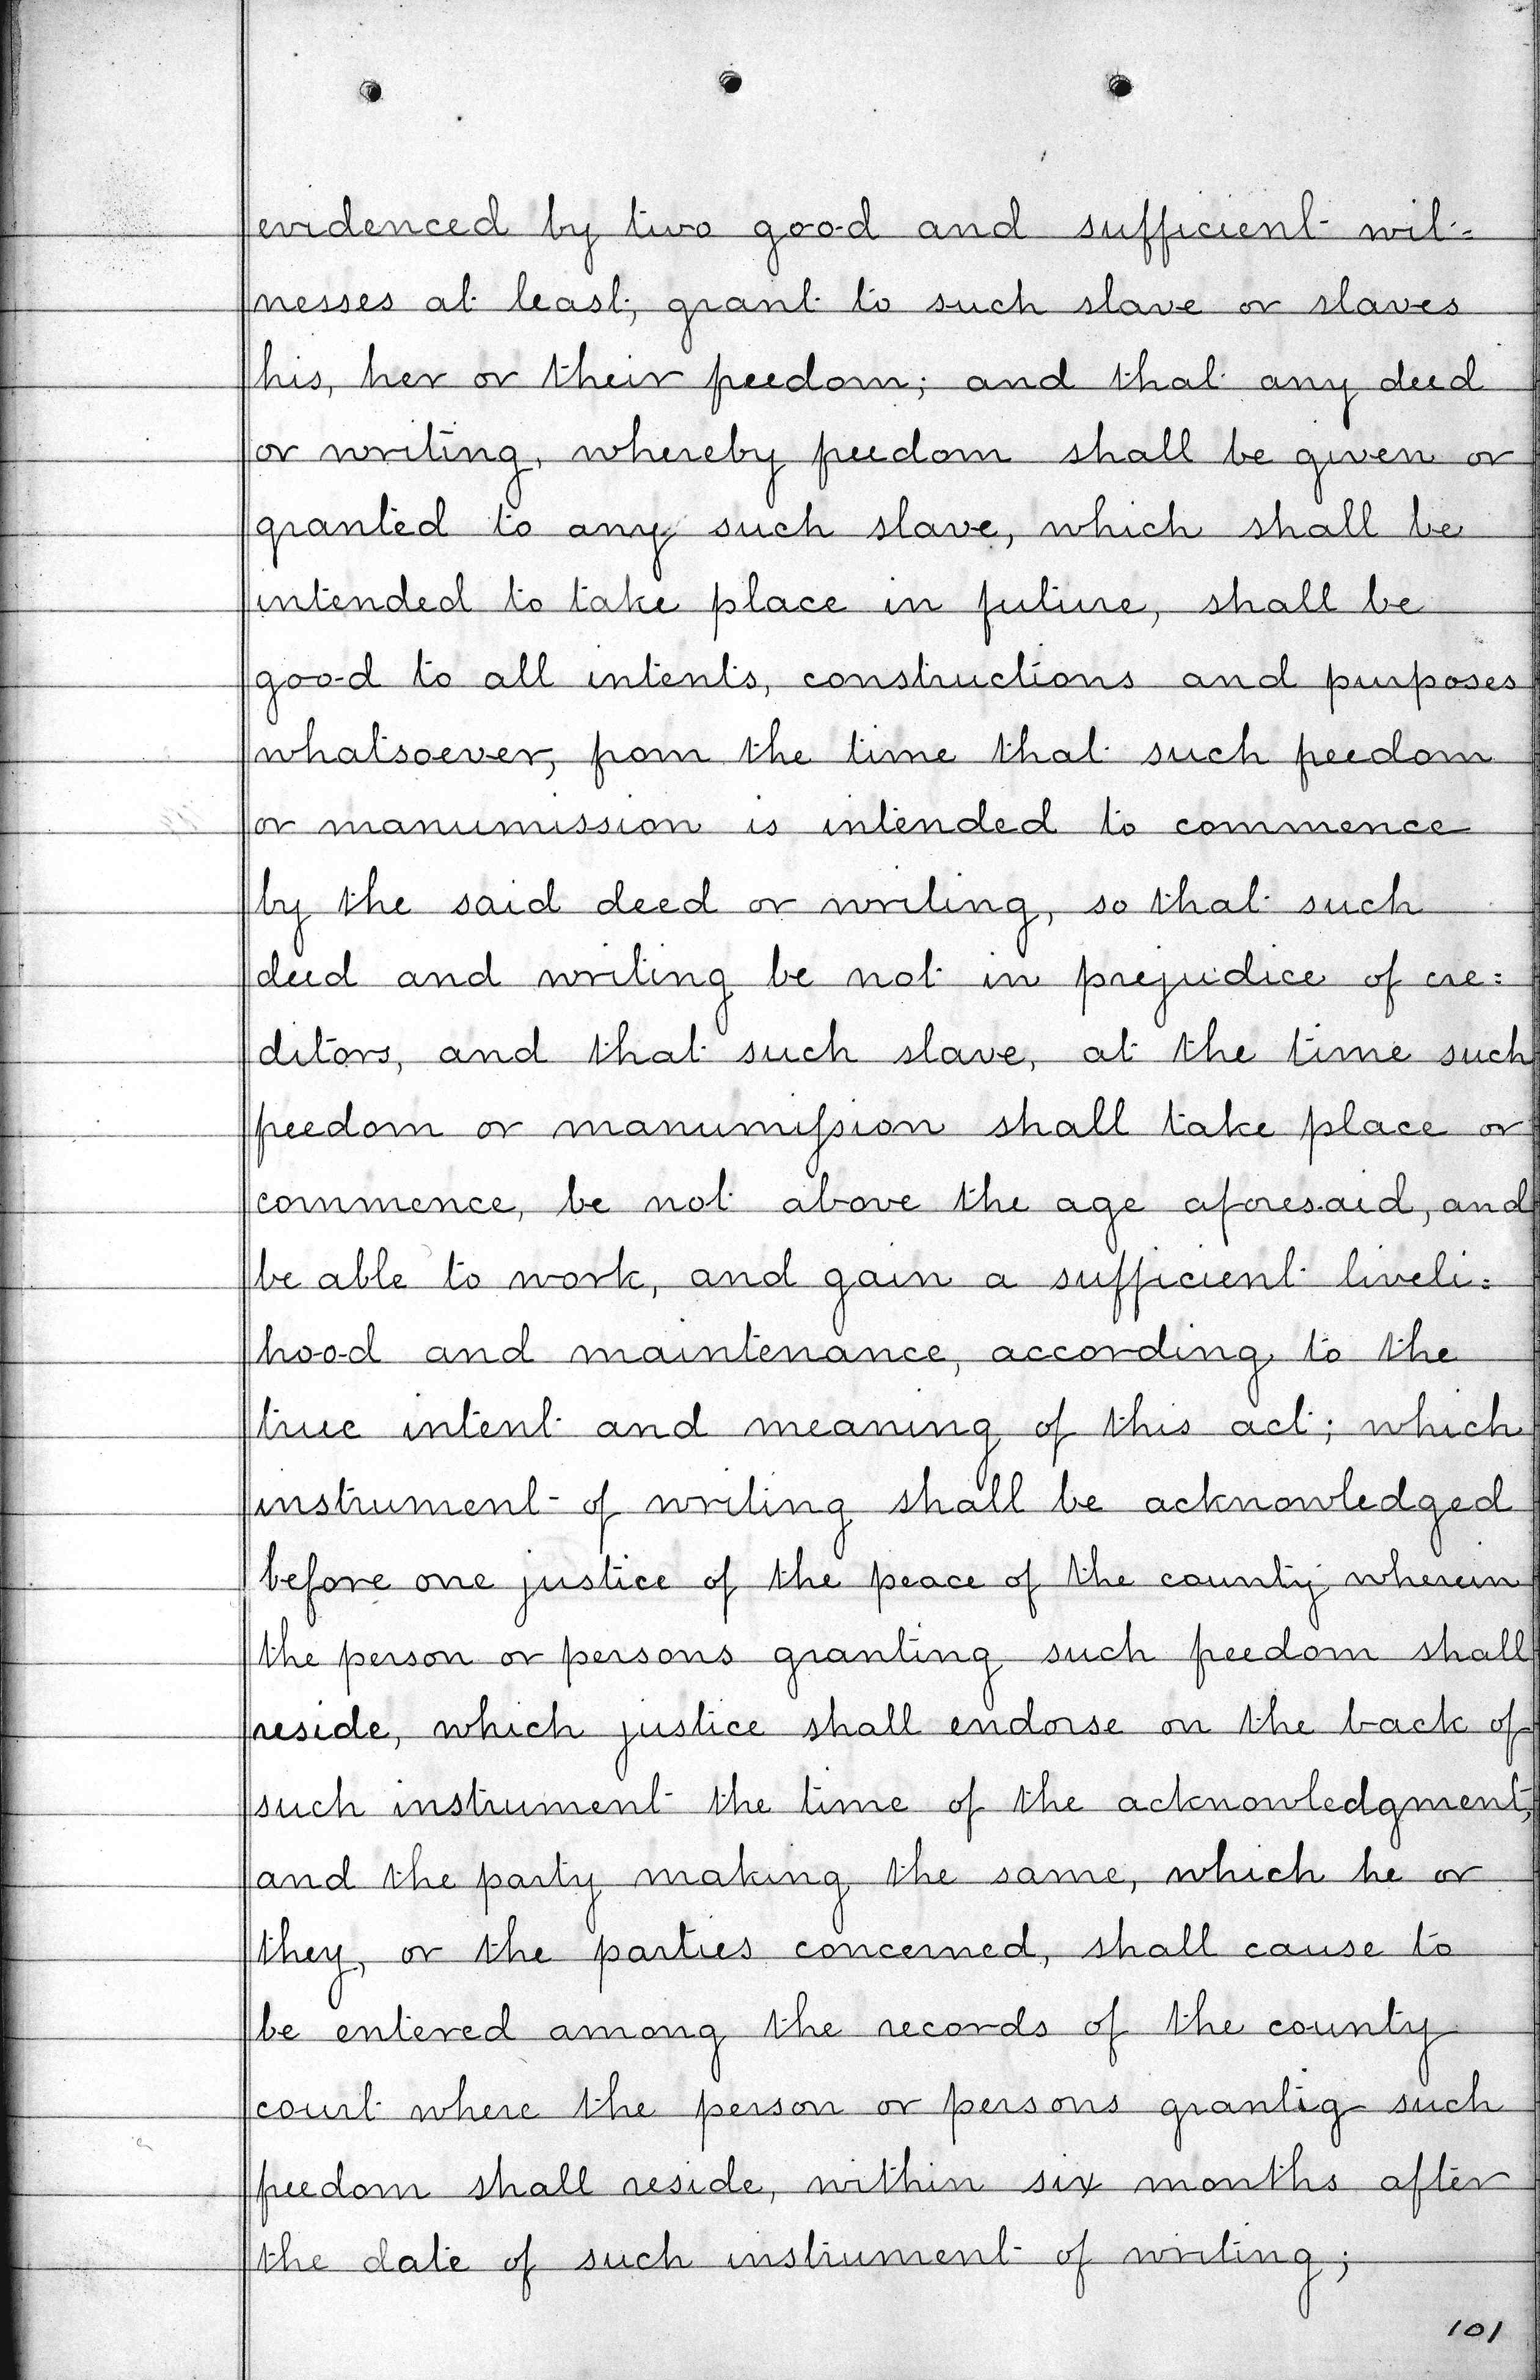 evidenced by two good and sufficient wit=
nesses at least, grant to such slave or slaves
his, her or their freedom; and that any deed
or writing, whereby freedom shall be given or
granted to any such slave, which shall be
intended to take place in future, shall be
good to all intents, constructions and purposes
whatsoever, from the time that such freedom
or manumission is intended to commence
by the said deed or writing, so that such
deed and writing be not in prejudice of cre=
ditors, and that such slave, at the time such
freedom or manumiſsion shall take place or
commence, be not above the age aforesaid, and
be able to work, and gain a sufficient liveli=
hood and maintenance, according to the
true intent and meaning of this act; which
instrument of writing shall be acknowledged
before one justice of the peace of the county wherein
the person or persons granting such freedom shall
reside, which justice shall endorse on the back of
such instrument the time of the acknowledgment,
and the party making the same, which he or
they, or the parties concerned, shall cause to
be entered among the records of the county
court where the person or persons grantig such
freedom shall reside, within six months after
the date of such instrument of writing;
101